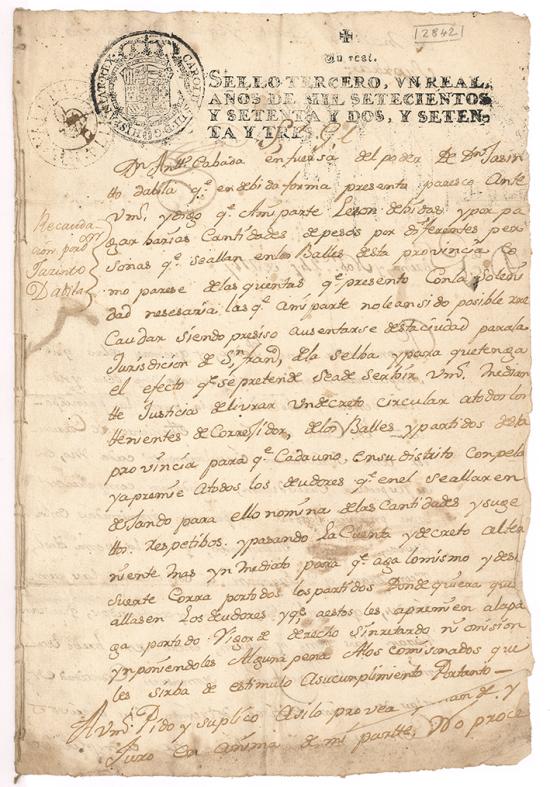 2842
Un real.
SELLO TERCERO, VN REAL,
AÑOS DE MIL SETECIENTOS
Y SETENTA Y DOS, Y SETEN-
TA Y TRES.
Dn Antto Cabada en fuersa del poder de Dn Jasin
tto dabila qe en debida forma presenta paresco Ante
Vm, y digo qe Ami parte Leson debidas y por pa
gar barias Cantidades de pesos por diferentes per
sonas qe se allan en los Balles desta provincia Co
mo parese de las quentas qe presento Con la Solemni
dad nesesaria, las qe ami parte no le an sido posible rre
Caudar siendo presiso ausentarse desta ciudad para la
Jurisdicion de Sn frand, de la selba y para que tenga
el efecto qe se pretende Sea de serbir Vm. median
tte Justicia de livrar un decreto circular a todos los
ttenientes de Corregidor, de los Balles y partidos desta
provincia para qe Cada uno, en su distrito Conpela
y apremie a todos los deudores qe en el se allaren
dejando para ello nomina de las Cantidades y suge
ttos. Respetibos. y pasando La Cuenta y decreto al te
niente mas ynmediato para qe aga lo mismo y desta
suerte Corra por todos los partidos Donde quiera que
allasen Los deudores y qe a estos les apremien a la pa
ga por todo Vigor de derecho sin retardo ni omision
ynponiendoles Alguna pena Alos Comisionados que
les sirba de estimulo Asu cumplimiento Portanto
A vm Pido y suplico Asi lo provea y mande. y
Juro en anima de mi partte, No proce
Recauda
cion por Dn
Jazinto
Dabila